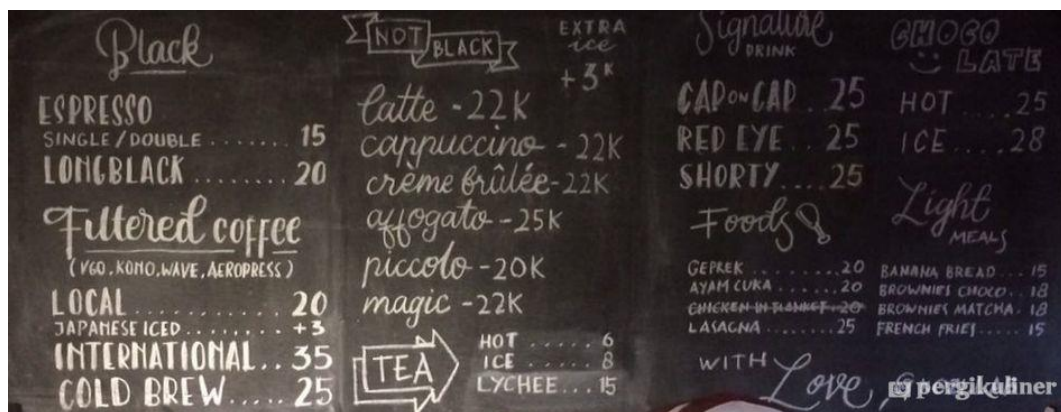 Black
ESPRESSO
SINGLE/DOUBLE ....... 15
LONGBLACK ........ 20
Filtered coffee
(V60, KONO, WAVE, AEROPRESS)
LOCAL 20
JAPANESE ICED ........ +3
INTERNATIONAL.. 35
COLD BREW..... 25
NOT BLACK
EXTRA
ice
+3K
latte - 22K
cappuccino - 22K
crème brûlée - 22K
affogato - 25K
piccolo - 20K
magic - 22K
TEA
HOT ..... 6
ICE ...... 8
LYCHEE... 15
Signature
DRINK
CAP ON CAP .. 25
RED EYE .. 25
SHORTY.... 25
Foods
GEPREK ......... 20
AYAM CUKA ...... 20
CHICKEN IN BLANKET .. 20
LASAGNA ....... 25
CHOCO
LATE
HOT .... 25
ICE .... 28
Light
MEALS
BANANA BREAD ... 15
BROWNIES CHOCO.. 18
BROWNIES MATCHA. 18
FRENCH FRIES .... 15
WITH Love,
pergikuliner